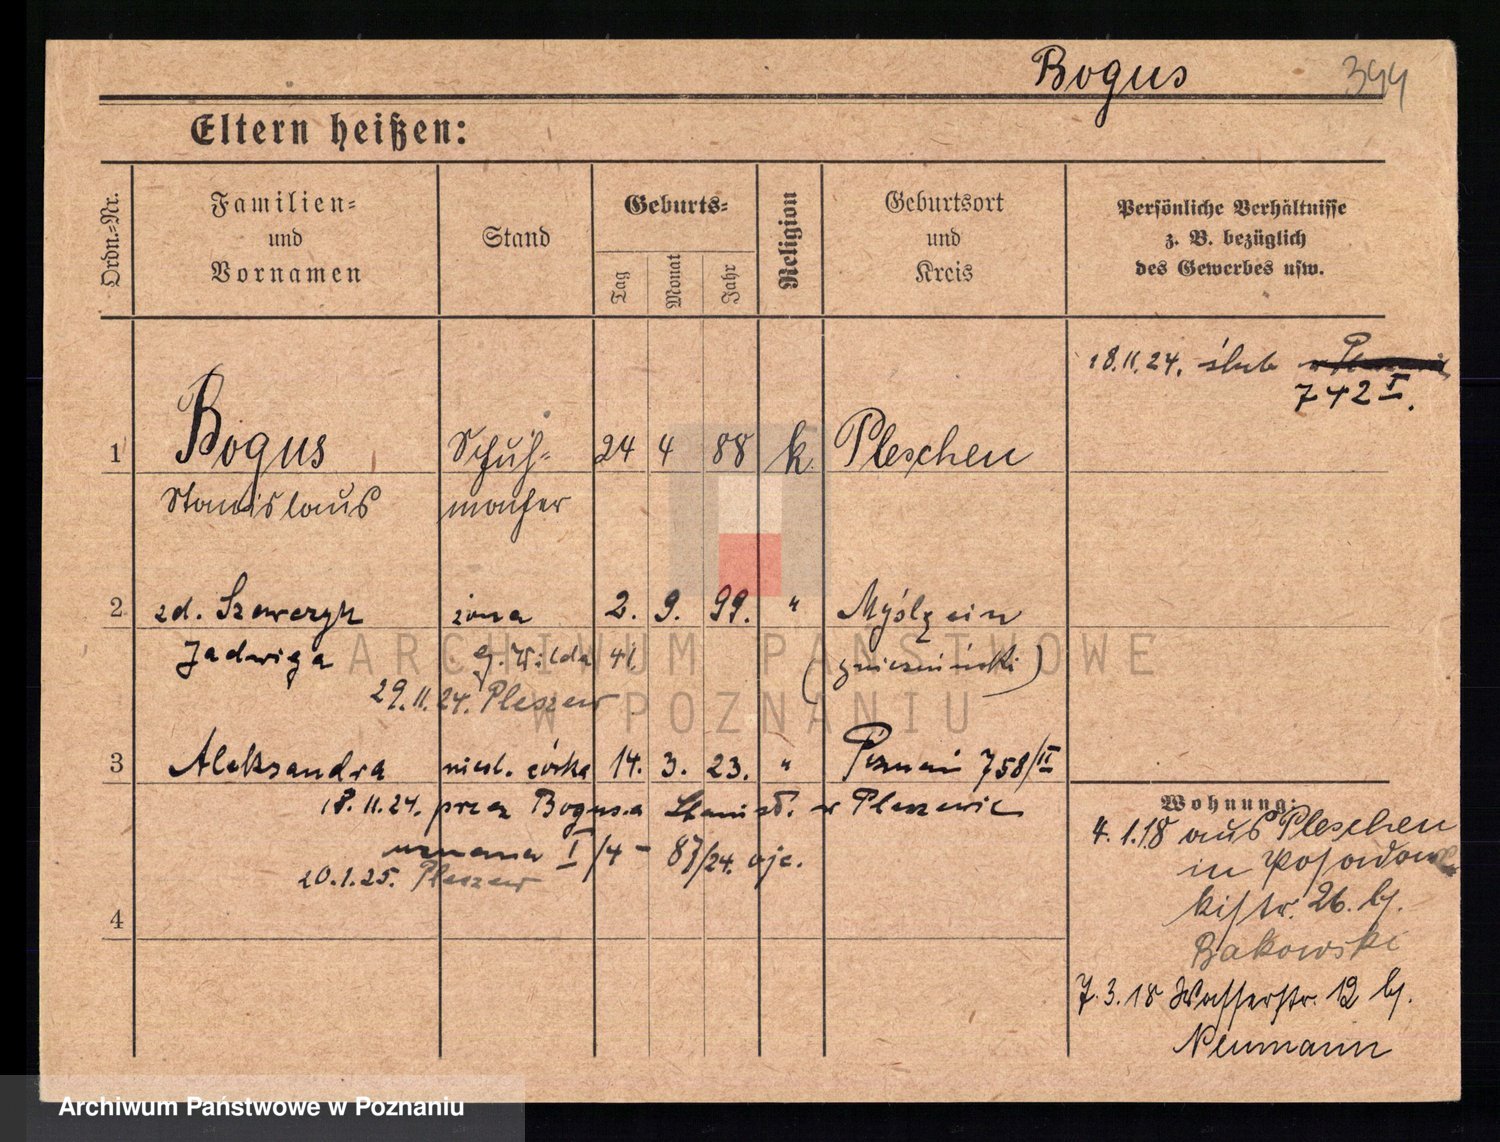 Bogus 344
Eltern heißen:
Ordn.-Nr.
Familien-
und
Vornamen
Stand
Geburts-
Tag
Monat
Jahr
Religion
Geburtsort
und
Kreis
Persönliche Verhältnisse
z. B. bezüglich
des Gewerbes usw.
18.11.24. ślub
742 I.
1 Bogus Schuh- 24 4 88 k. Pleschen
Stanislaus macher
2 zd. Szewczyk żona 2. 9. 99. " Myślęcin
Jadwiga G. Wilda 41. (gnieźnieński)
29.11.24. Pleszew
3 Aleksandra nieśl. córka 14. 3. 23. " Poznań 758/II
18.11.24. przez Bogusa Stanisł. w Pleszewie
uznana I/4 - 87/24.
20.1.25. Pleszew
4
Wohnung:
4.1.18 aus Pleschen
in Posadow
kistr. 26. bj.
Bakowski
7.3.18 Wasserstr. 12 bj.
Neumann
ARCHIWUM PAŃSTWOWE
W POZNANIU
Archiwum Państwowe w Poznaniu